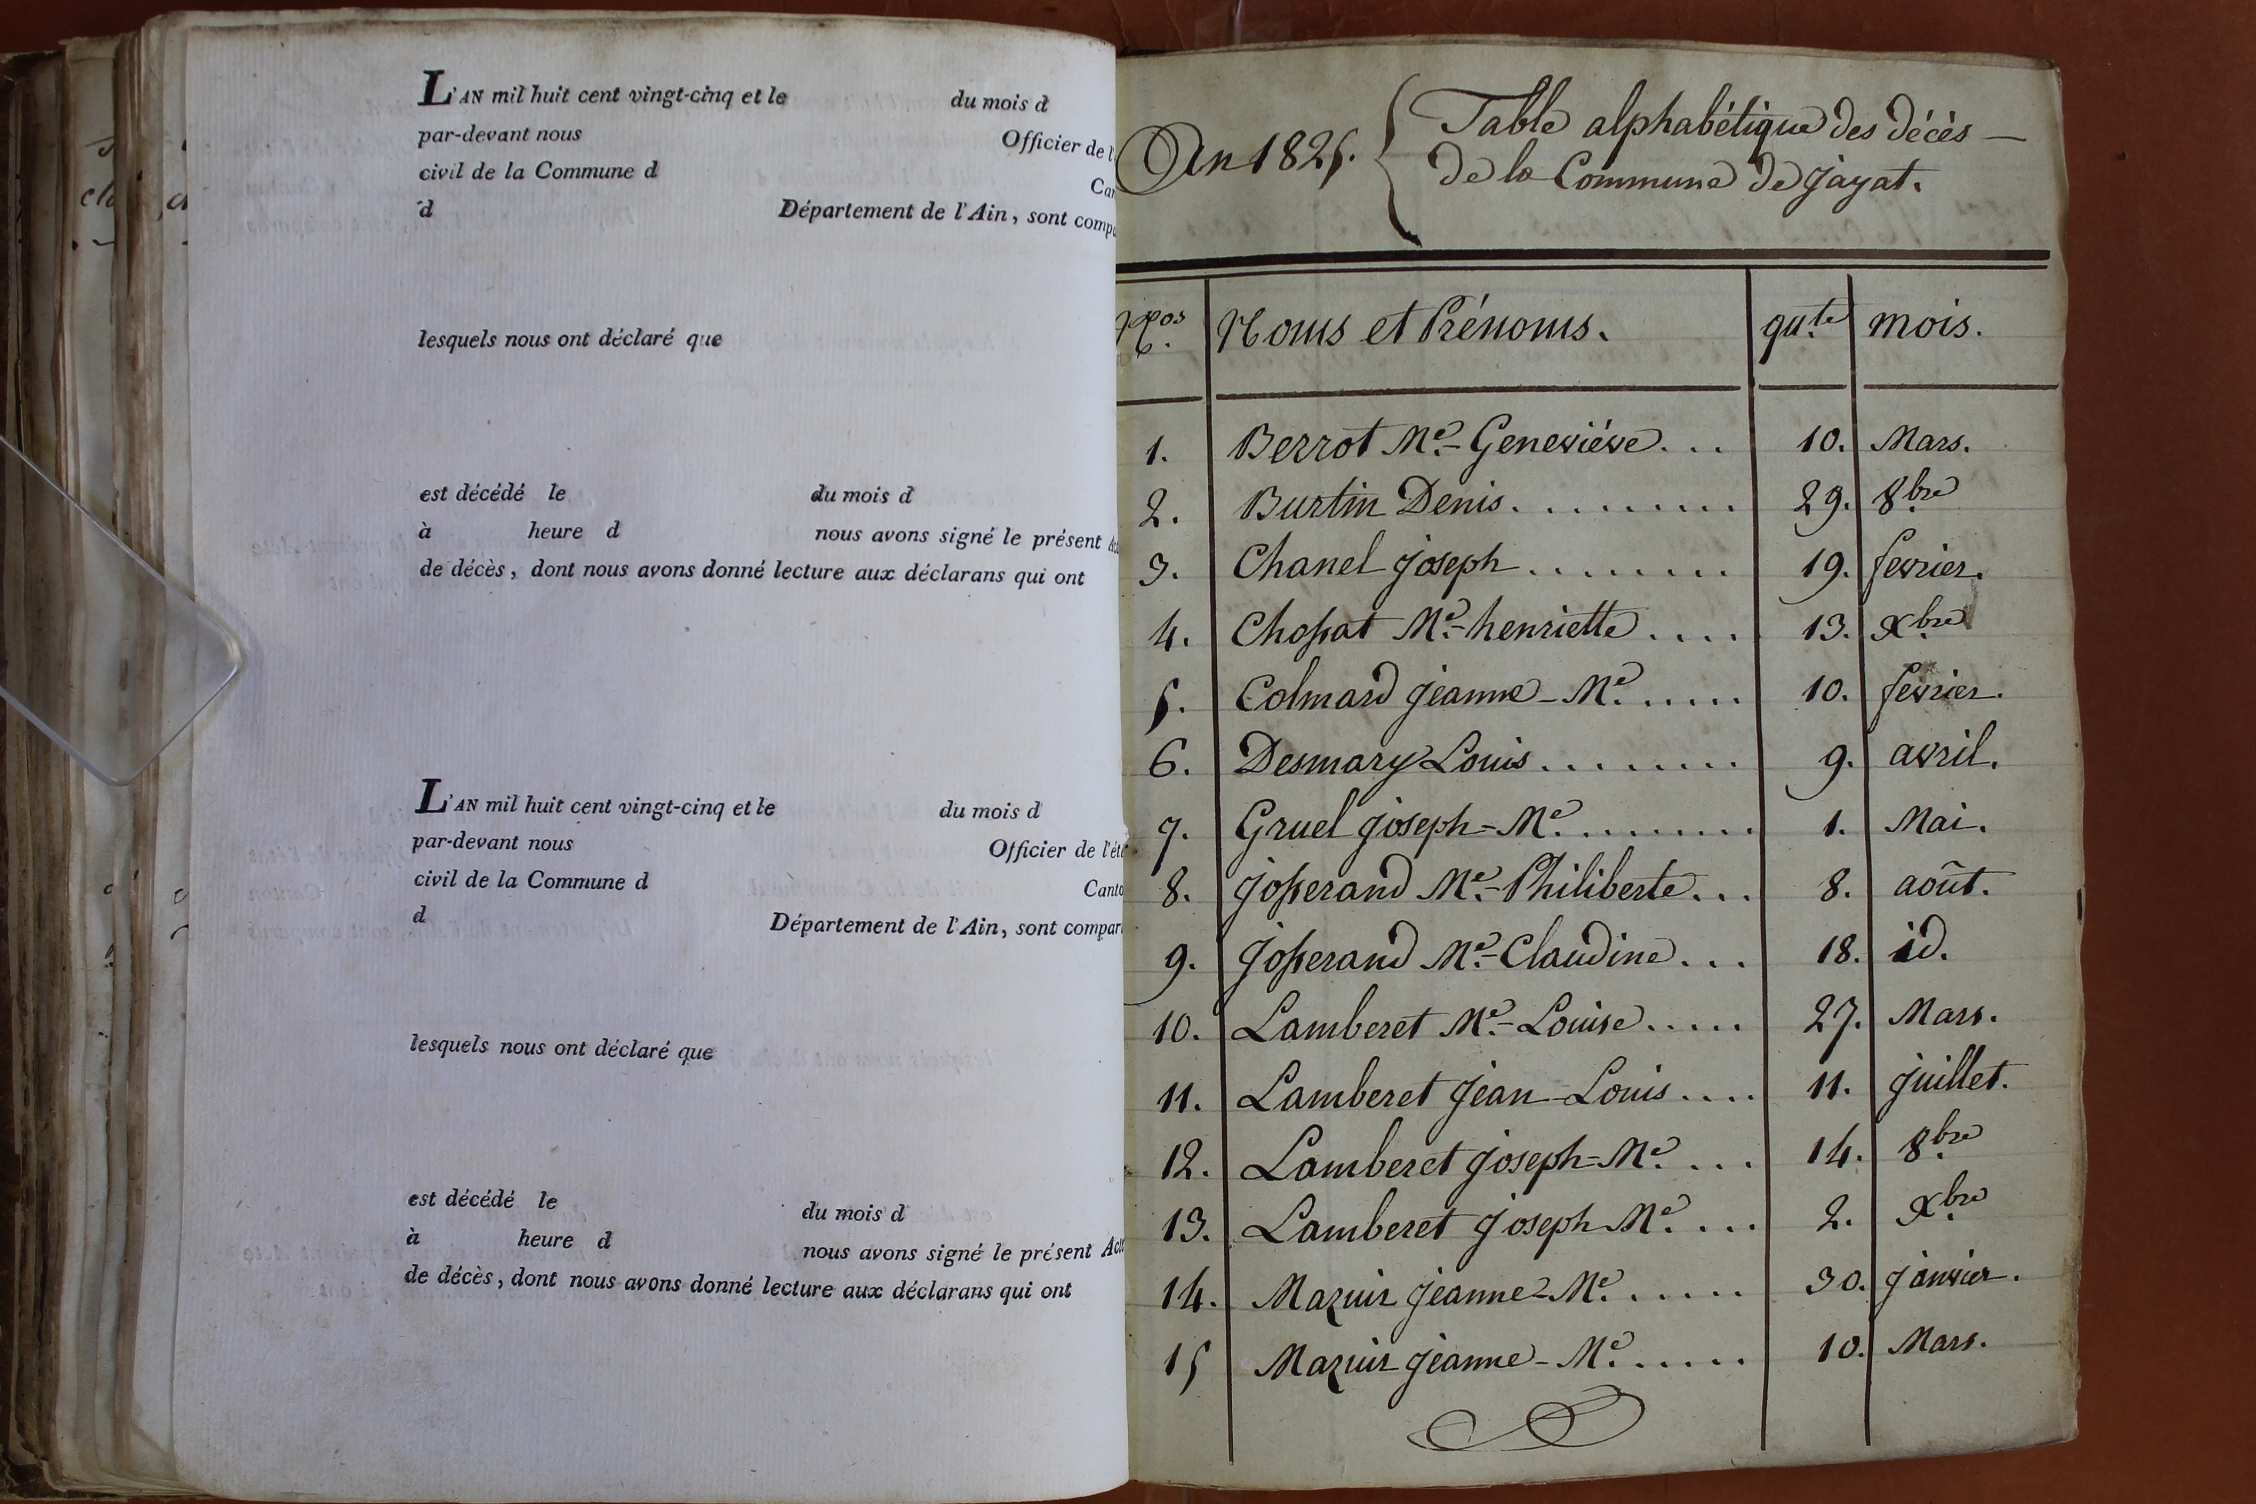 L'AN mil huit cent vingt-cinq et le du mois d
par-devant nous Officier de l'
civil de la Commune d Can
d Département de l'Ain, sont compa
lesquels nous ont déclaré que
est décédé le du mois d
à heure d nous avons signé le présent Ac
de décès, dont nous avons donné lecture aux déclarans qui ont
L'AN mil huit cent vingt-cinq et le du mois d
par-devant nous Officier de l'éta
civil de la Commune d Canto
d Département de l'Ain, sont compar
lesquels nous ont déclaré que
est décédé le du mois d
à heure d nous avons signé le présent Acte
de décès, dont nous avons donné lecture aux déclarans qui ont
An 1825. Table alphabétique des décès
de la Commune de Jayat.
Nos. Noms et Prénoms. qu.te mois.
1. Berrot Me.-Geneviéve... 10. Mars.
2. Burtin Denis......... 29. 8bre
3. Chanel joseph........ 19. fevrier.
4. Chossat Me.-henriette.... 13. Xbre
5. Colmard jeanne-Me...... 10. fevrier.
6. Desmary Louis........ 9. avril.
7. Gruel joseph-Me......... 1. Mai.
8. josserand Me.-Philiberte... 8. août.
9. josserand Me.-Claudine... 18. id.
10. Lamberet Me.-Louise..... 27. Mars.
11. Lamberet jean-Louis.... 11. juillet.
12. Lamberet joseph-Me.... 14. 8bre
13. Lamberet joseph-Me.... 2. Xbre
14. Mazuir jeanne-Me...... 30. janvier.
15 Mazuir jeanne-Me...... 10. Mars.